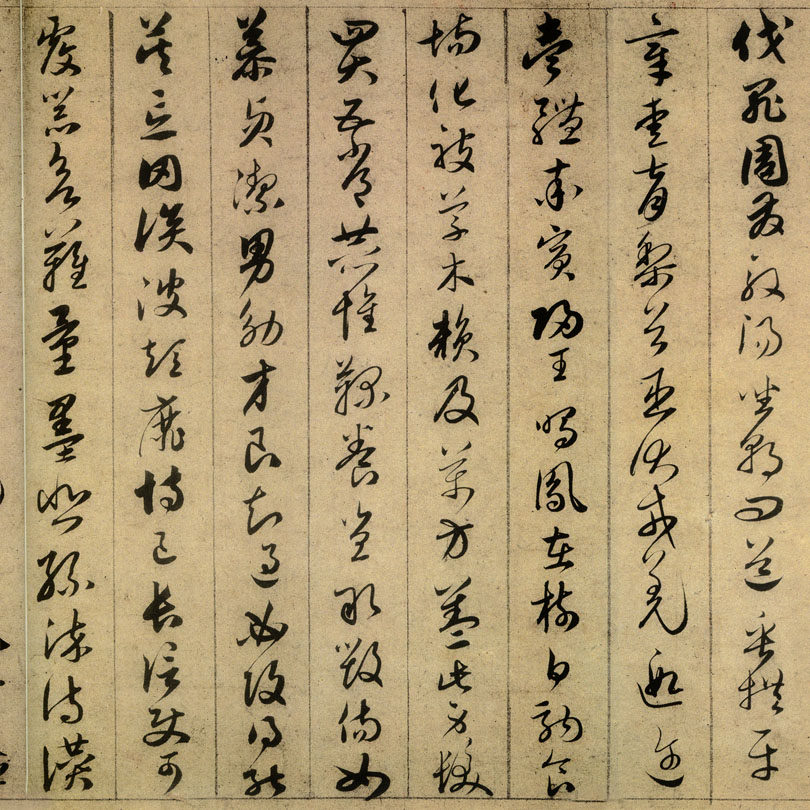 伐罪周發殷湯坐朝問道垂拱平
章愛育黎首臣伏戎羌遐邇
壹體率賓歸王鳴鳳在樹白駒食
場化被草木賴及萬方蓋此身髮
四大五常恭惟鞠養豈敢毀傷女
慕貞潔男效才良知過必改得能
莫忘罔談彼短靡恃己長信使可
覆器欲難量墨悲絲染詩讚